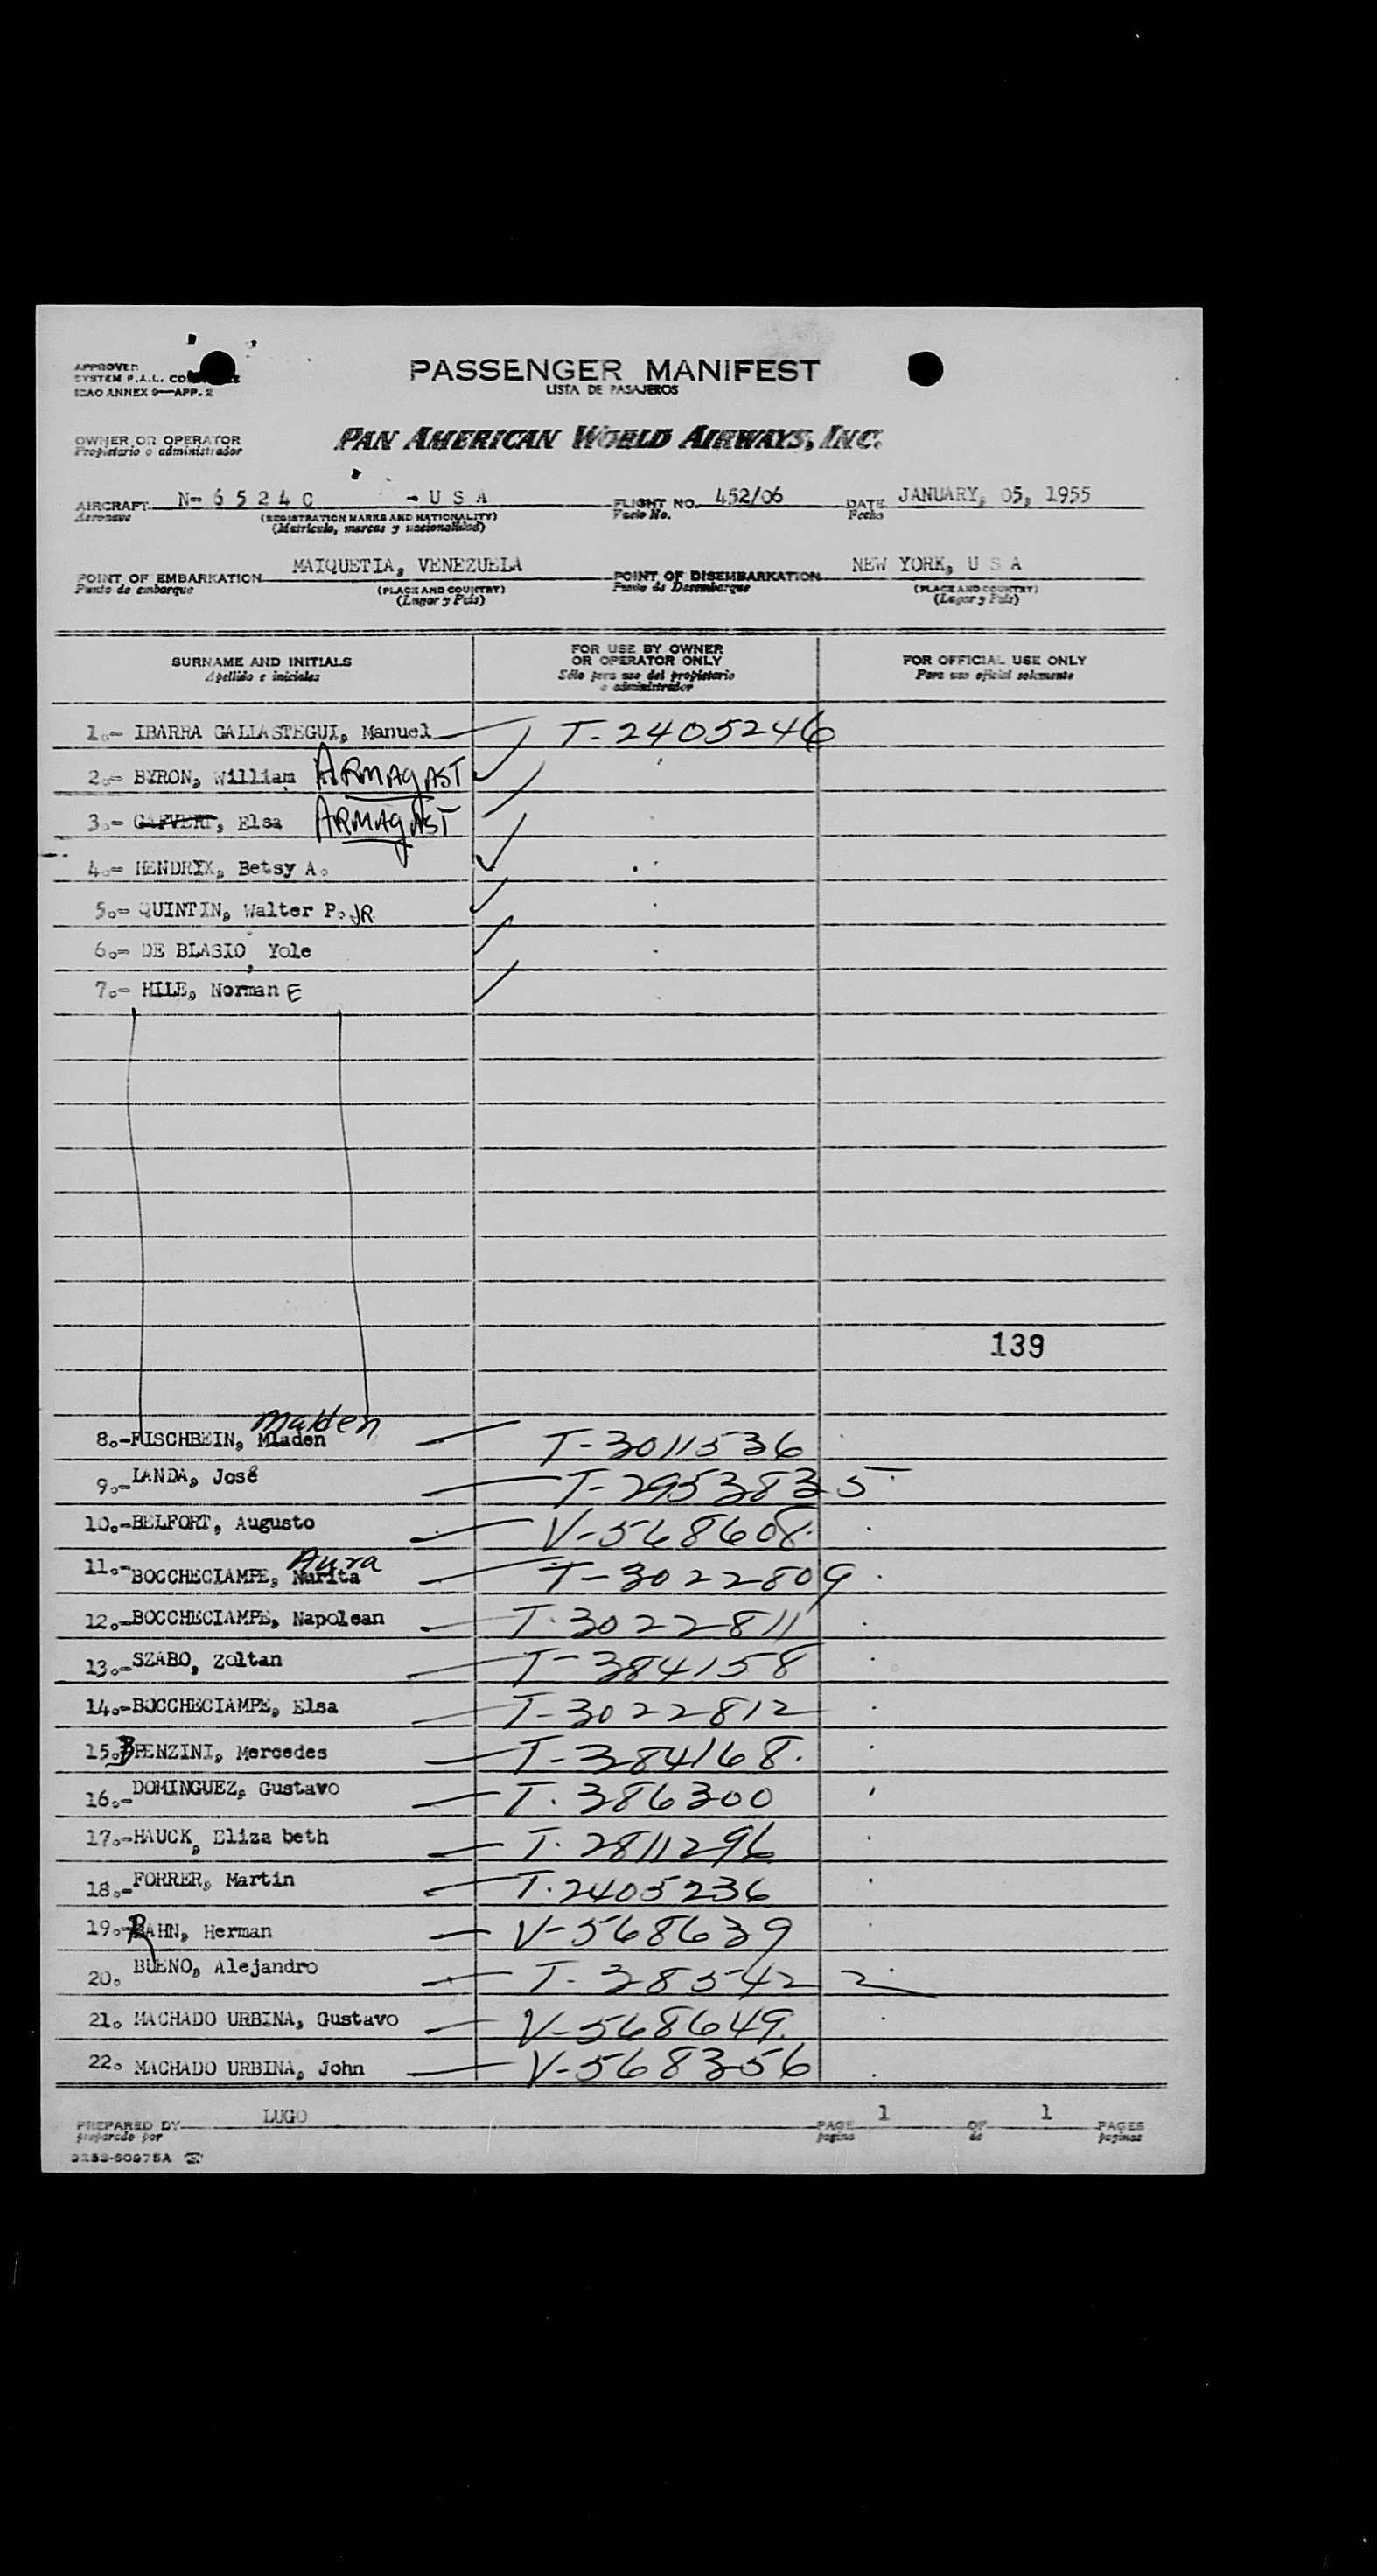 APPROVED
SYSTEM F.A.L.
ICAO ANNEX 9—APP. 2
PASSENGER MANIFEST
LISTA DE PASAJEROS
OWNER OR OPERATOR
Propietario o administrador
PAN AMERICAN WORLD AIRWAYS, INC.
AIRCRAFT N- 6 5 2 4 C - U S A FLIGHT NO. 452/06 DATE JANUARY, 05, 1955
Aeronave (REGISTRATION MARKS AND NATIONALITY) Vuelo No. Fecha
(Matrícula, marcas y nacionalidad)
POINT OF EMBARKATION MAIQUETIA, VENEZUELA POINT OF DISEMBARKATION NEW YORK, U S A
Punto de embarque (PLACE AND COUNTRY) Punto de Desembarque (PLACE AND COUNTRY)
(Lugar y País) (Lugar y País)
SURNAME AND INITIALS
Apellido e iniciales
FOR USE BY OWNER
OR OPERATOR ONLY
Sólo para uso del propietario
o administrador
FOR OFFICIAL USE ONLY
Para uso oficial solamente
1.- IBARRA GALLASTEGUI, Manuel T-2405246
2.- BYRON, William ARMAGAST
3.- GAFVERT, Elsa ARMAGAST
4.- HENDRYX, Betsy A.
5.- QUINTIN, Walter P. JR
6.- DE BLASIO, Yole
7.- HILE, Norman E
139
Malden
8.-FISCHBEIN, Mladen T-3011536
9.-LANDA, José T-2953835
10.-BELFORT, Augusto V-568608.
Aura
11.-BOCCHECIAMPE, Nurita T-3022809
12.-BOCCHECIAMPE, Napolean T-3022811
13.-SZABO, Zoltan T-384158
14.-BOCCHECIAMPE, Elsa T-3022812
15.-BENZINI, Mercedes T-384168.
16.-DOMINGUEZ, Gustavo T-386300
17.-HAUCK, Eliza beth T-2811296
18.-FORRER, Martin T-2405236
19.-RAHN, Herman V-568639
20. BUENO, Alejandro T-385422
21. MACHADO URBINA, Gustavo V-568649.
22. MACHADO URBINA, John V-568356
PREPARED BY LUGO PAGE 1 OF 1 PAGES
preparado por pagina de paginas
9253-50975A